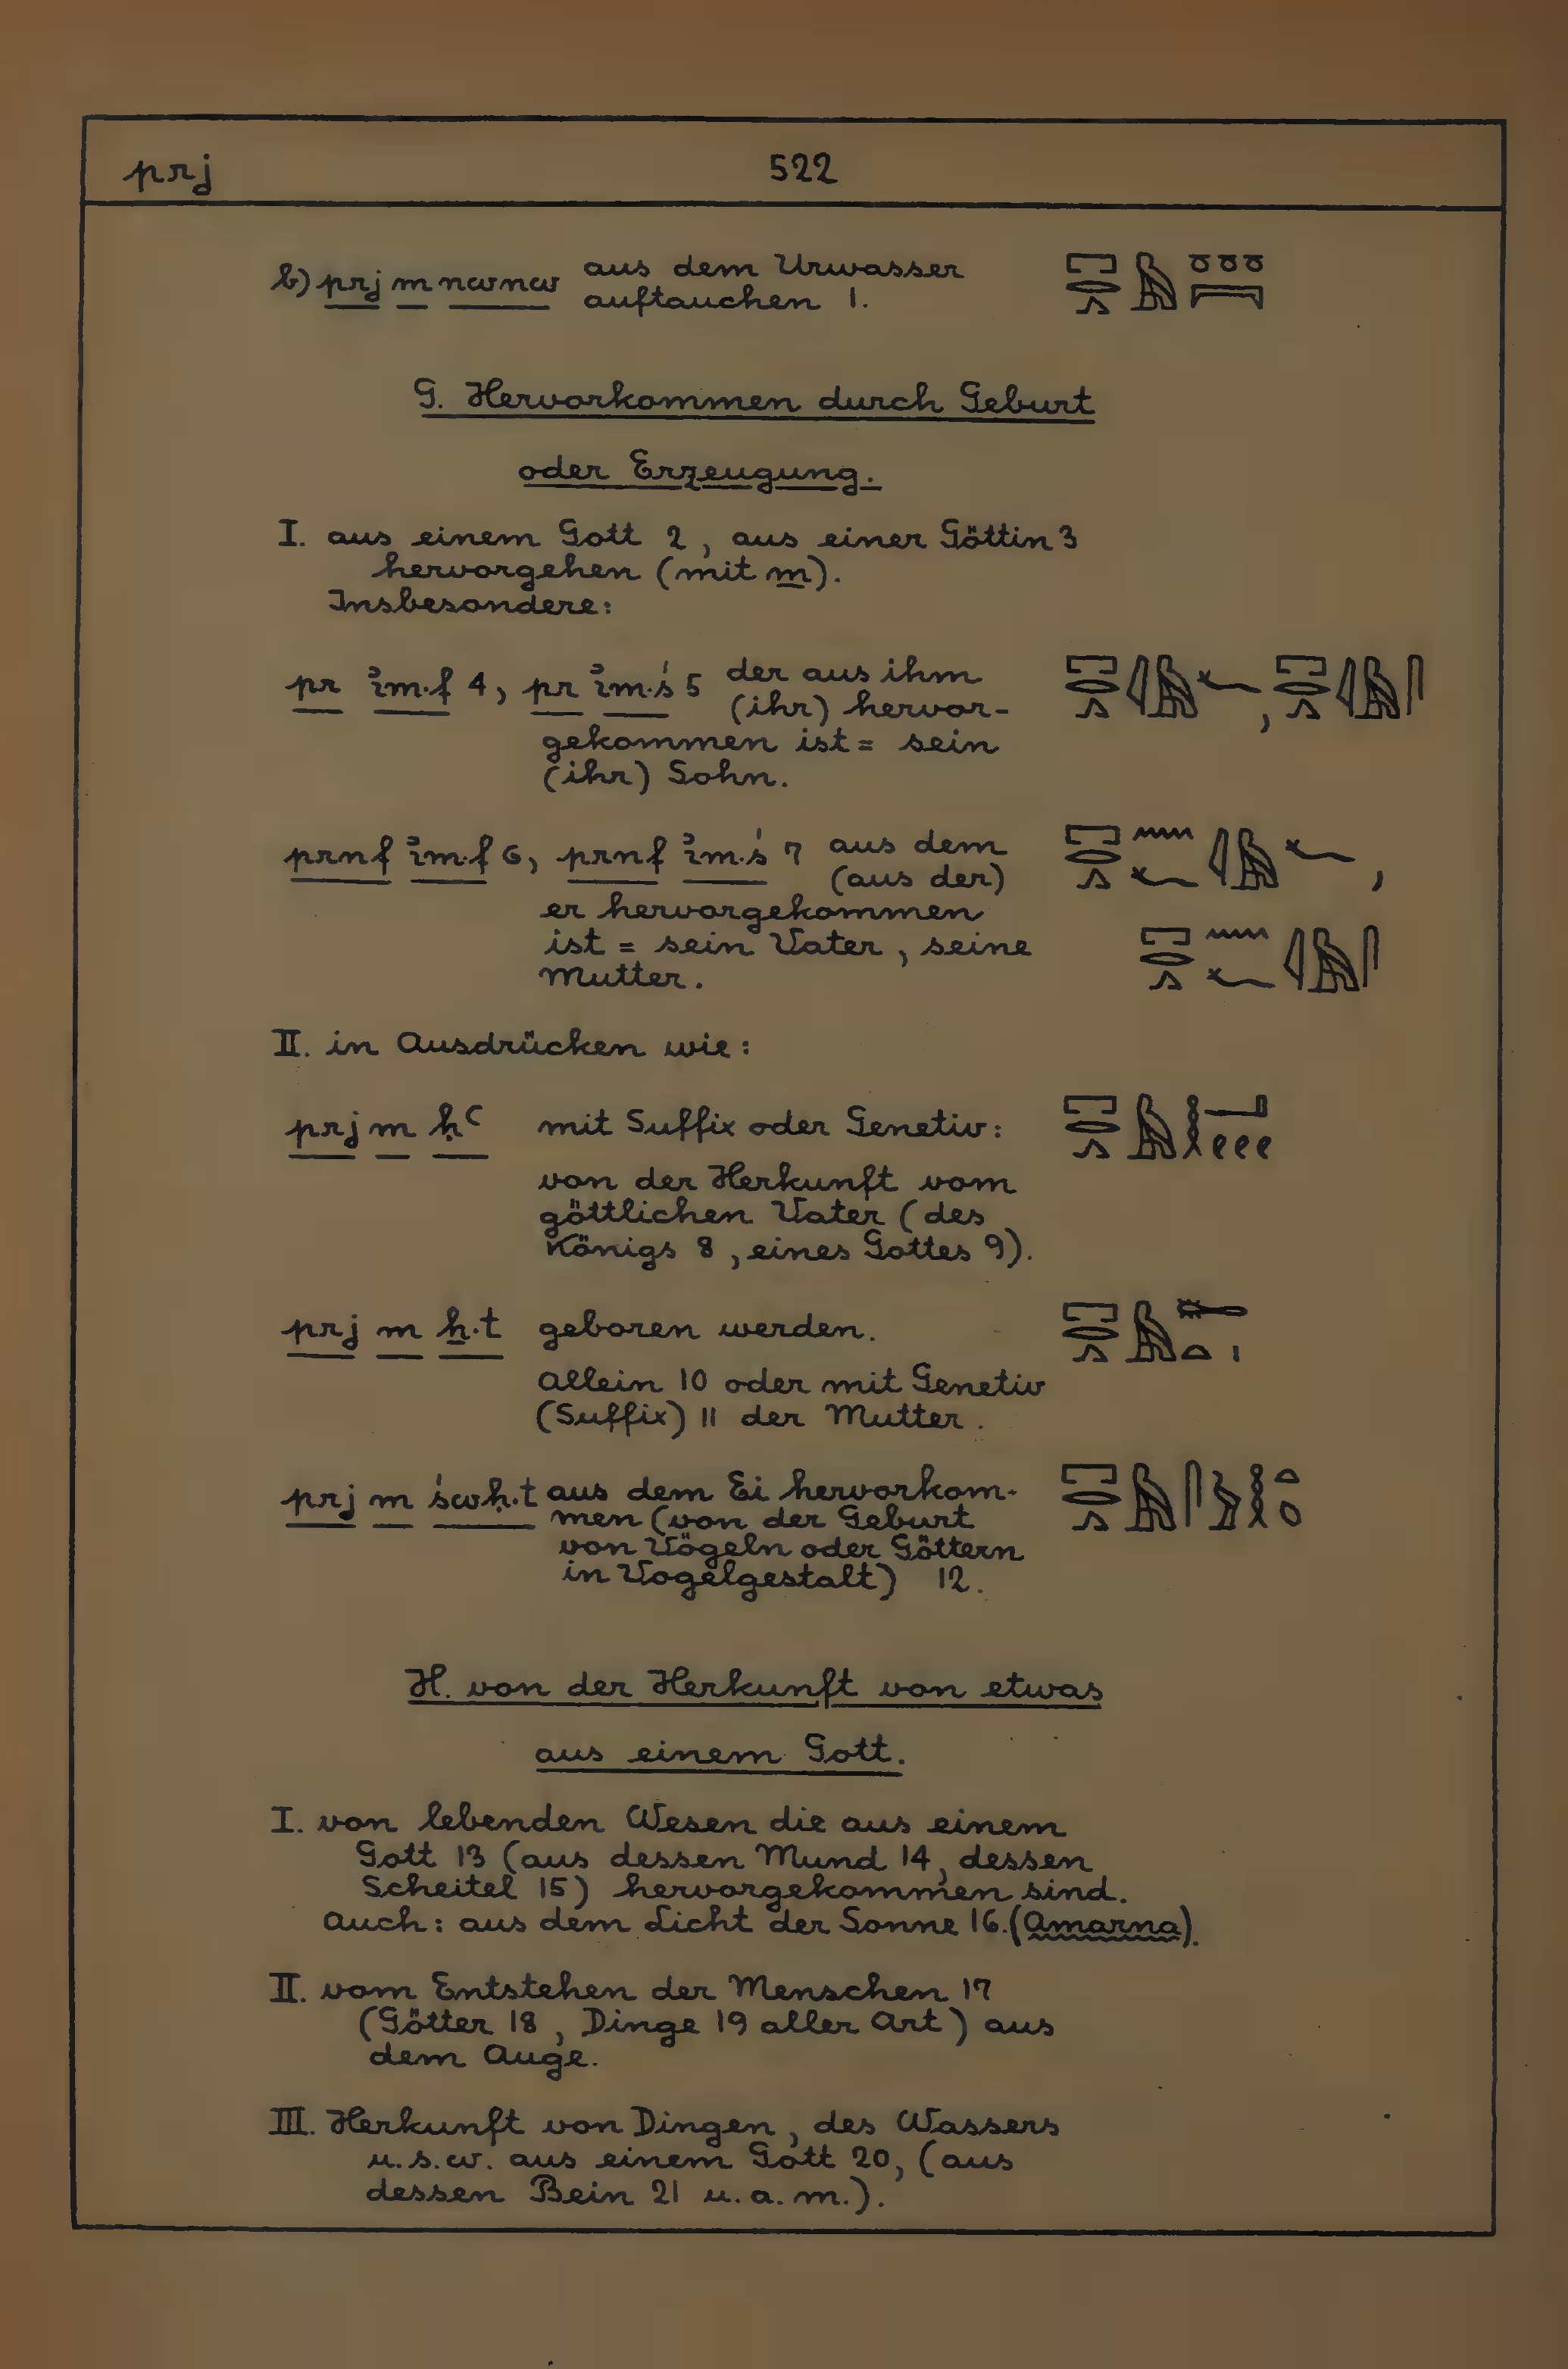 prj 522
b) prj m nwnw aus dem Urwasser
auftauchen 1.
G. Hervorkommen durch Geburt
oder Erzeugung.
I. aus einem Gott 2, aus einer Göttin 3
hervorgehen (mit m).
Insbesondere:
pr ỉm.f 4, pr ỉm.ś 5 der aus ihm
(ihr) hervor-
gekommen ist = sein
(ihr) Sohn.
prnf ỉm.f 6, prnf ỉm.ś 7 aus dem
(aus der)
er hervorgekommen
ist = sein Vater, seine
Mutter.
II. in Ausdrücken wie:
prj m ḥꜥ mit Suffix oder Genetiv:
von der Herkunft vom
göttlichen Vater (des
Königs 8, eines Gottes 9).
prj m ẖ.t geboren werden.
Allein 10 oder mit Genetiv
(Suffix) 11 der Mutter.
prj m św​ḥ.t aus dem Ei hervorkom-
men (von der Geburt
von Vögeln oder Göttern
in Vogelgestalt) 12.
H. von der Herkunft von etwas
aus einem Gott.
I. von lebenden Wesen die aus einem
Gott 13 (aus dessen Mund 14, dessen
Scheitel 15) hervorgekommen sind.
Auch: aus dem Licht der Sonne 16. (Amarna).
II. vom Entstehen der Menschen 17
(Götter 18, Dinge 19 aller Art) aus
dem Auge.
III. Herkunft von Dingen, des Wassers
u.s.w. aus einem Gott 20, (aus
dessen Bein 21 u.a.m.).